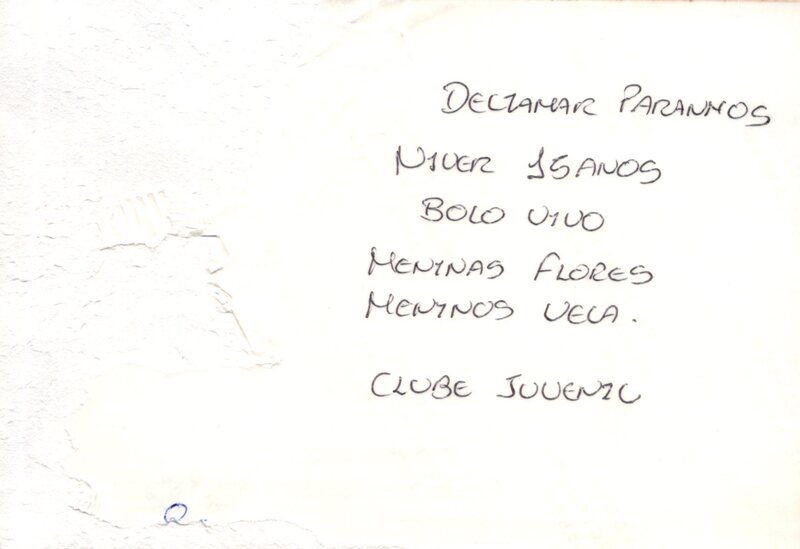 DELZAMAR PARANHOS
NIVER 15 ANOS
BOLO VIVO
MENINAS FLORES
MENINOS VELA.
CLUBE JUVENIL
Q.